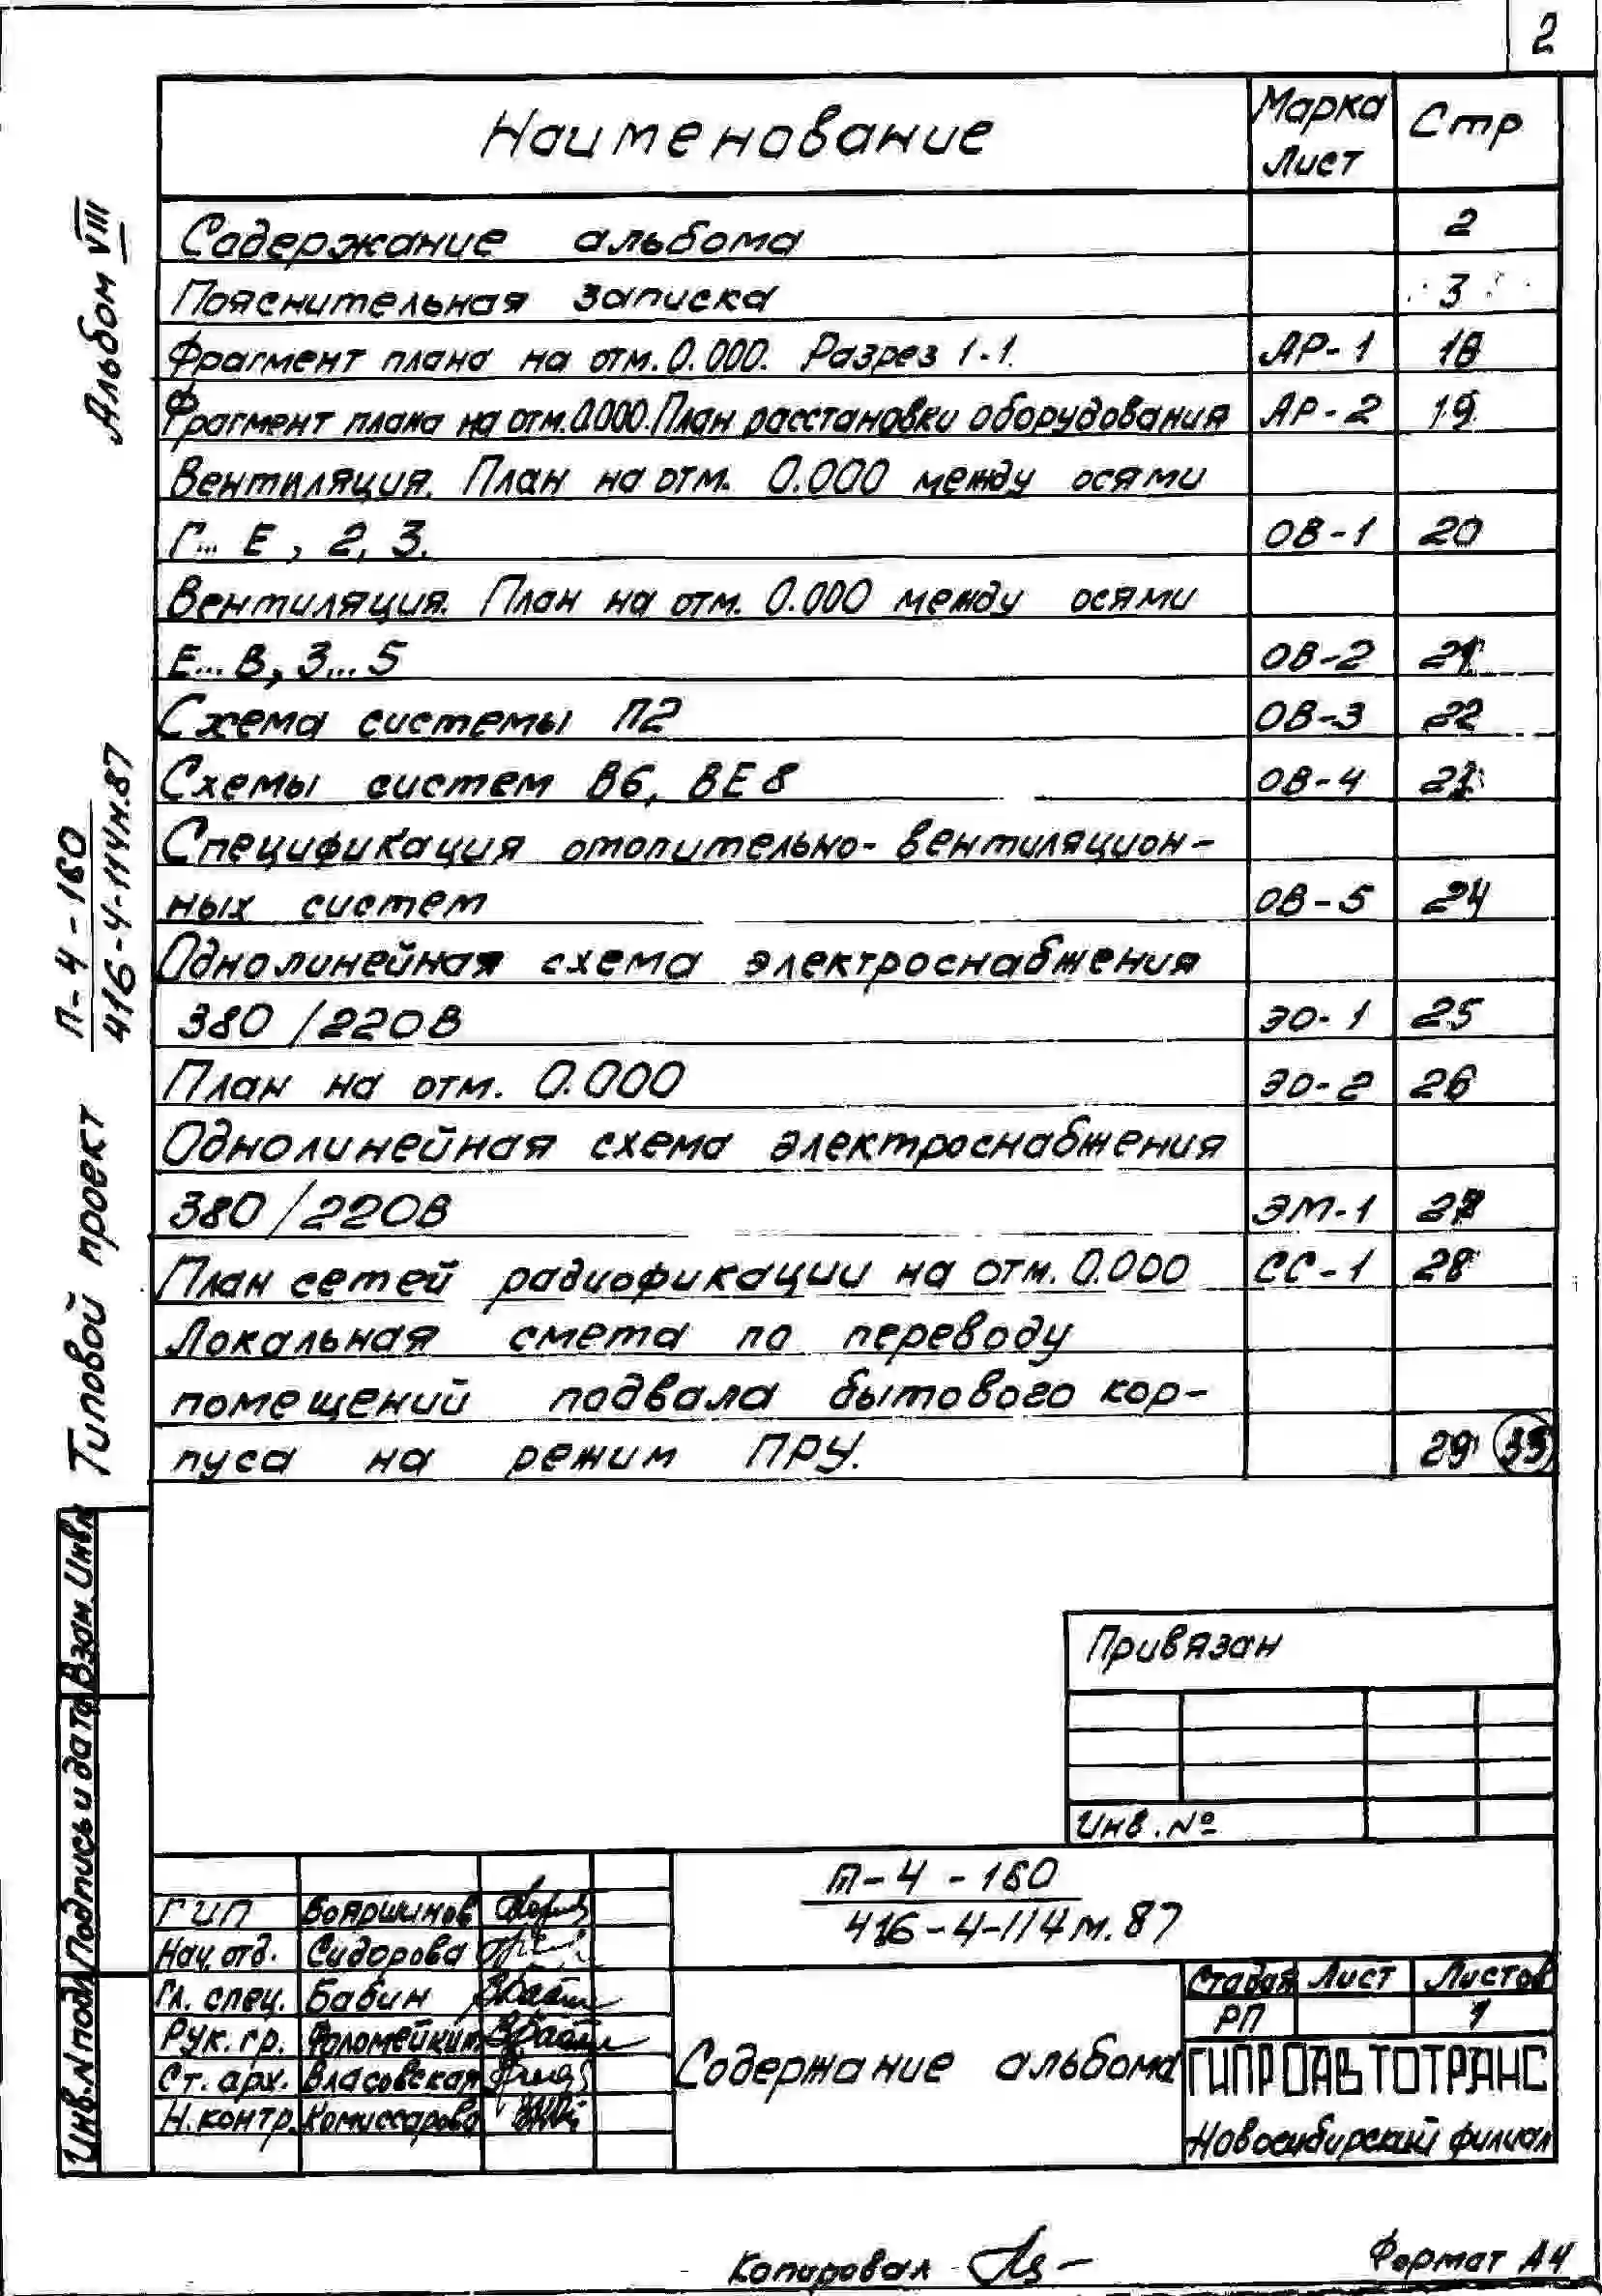 2
Наименование
Марка Лист
Стр
Содержание альбома 2
Пояснительная записка 3
Фрагмент плана на отм. 0.000. Разрез 1-1. АР-1 18
Фрагмент плана на отм.0.000.План расстановки оборудования АР-2 19
Вентиляция. План на отм. 0.000 между осями
Г... Е, 2, 3. ОВ-1 20
Вентиляция. План на отм. 0.000 между осями
Е...В, 3...5 ОВ-2 21
Схема системы П2 ОВ-3 22
Схемы систем В6, ВЕ8 ОВ-4
Спецификация отопительно-вентиляцион-
ных систем ОВ-5 24
Однолинейная схема электроснабжения
380/220В ЭО-1 25
План на отм. 0.000 ЭО-2 26
Однолинейная схема электроснабжения
380/220В ЭМ-1 27
План сетей радиофикации на отм. 0.000 СС-1 28
Локальная смета по переводу
помещений подвала бытового кор-
пуса на режим ПРУ. 29
Альбом VIII
Типовой проект П-4-160
416-4-114м.87
Взам. Инв.№
Подпись и дата
Инв.№подл
Привязан
Инв. №
П-4-160
416-4-114м.87
ГИП Вояршинов
Нач. отд. Сидорова
Гл. спец. Бабин
Рук. гр. Фоломейкин
Ст. арх. Власовская
Н. контр. Комиссарова
Содержание альбома
Стадия Лист Листов
РП 1
ГИПРОАВТОТРАНС
Новосибирский филиал
Копировал
Формат А4